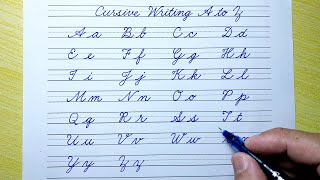 Cursive Writing A to Z
A a B b C c D d
E e F f G g H h
I i J j K k L l
M m N n O o P p
Q q R r S s T t
U u V v W w X x
Y y Z z